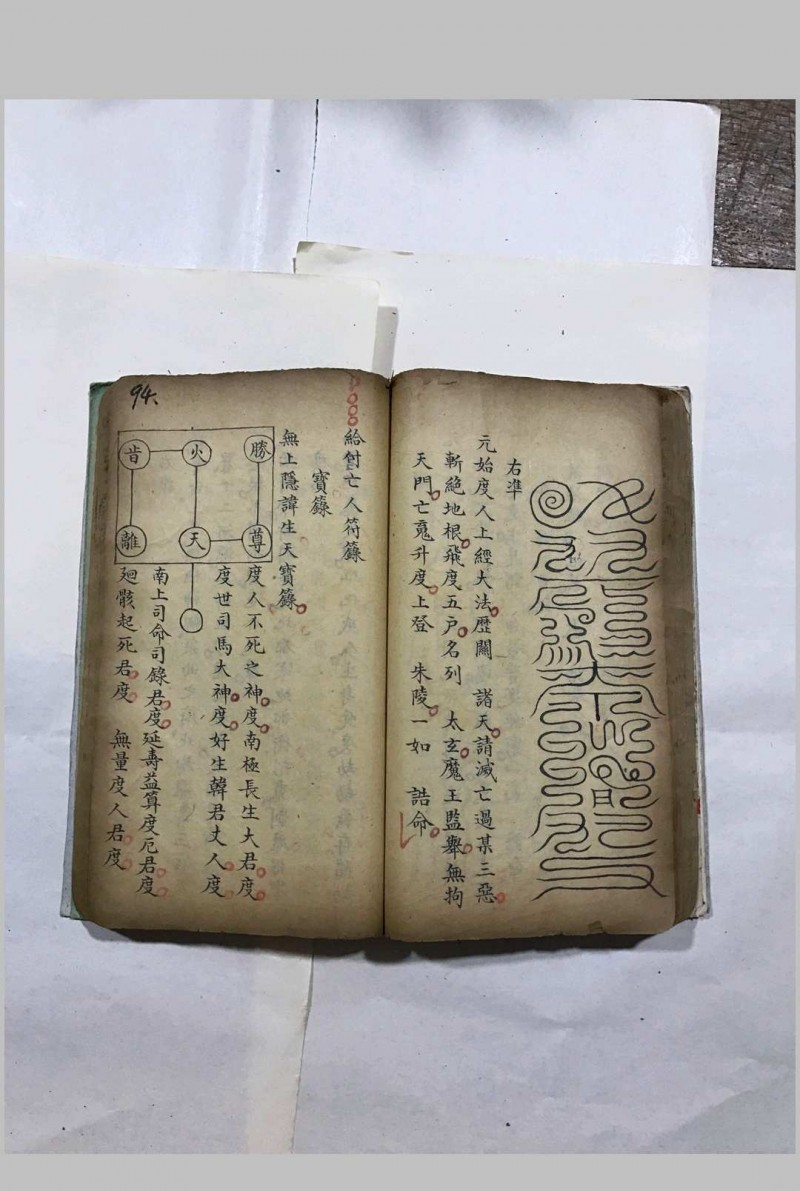 右準
元始度人上經大法歷關　諸天請滅亡過某三惡
斬絕地根飛度五戶名列　太玄魔王監舉無拘
天門亡魂升度上登　朱陵一如　誥命
給付亡人符籙
寶籙
無上隱諱生天寶籙
勝 火 肯
尊 天 離
度人不死之神度南極長生大君度
度世司馬大神度好生韓君丈人度
南上司命司錄君度延壽益算度厄君度
廻骸起死君度　無量度人君度
94.